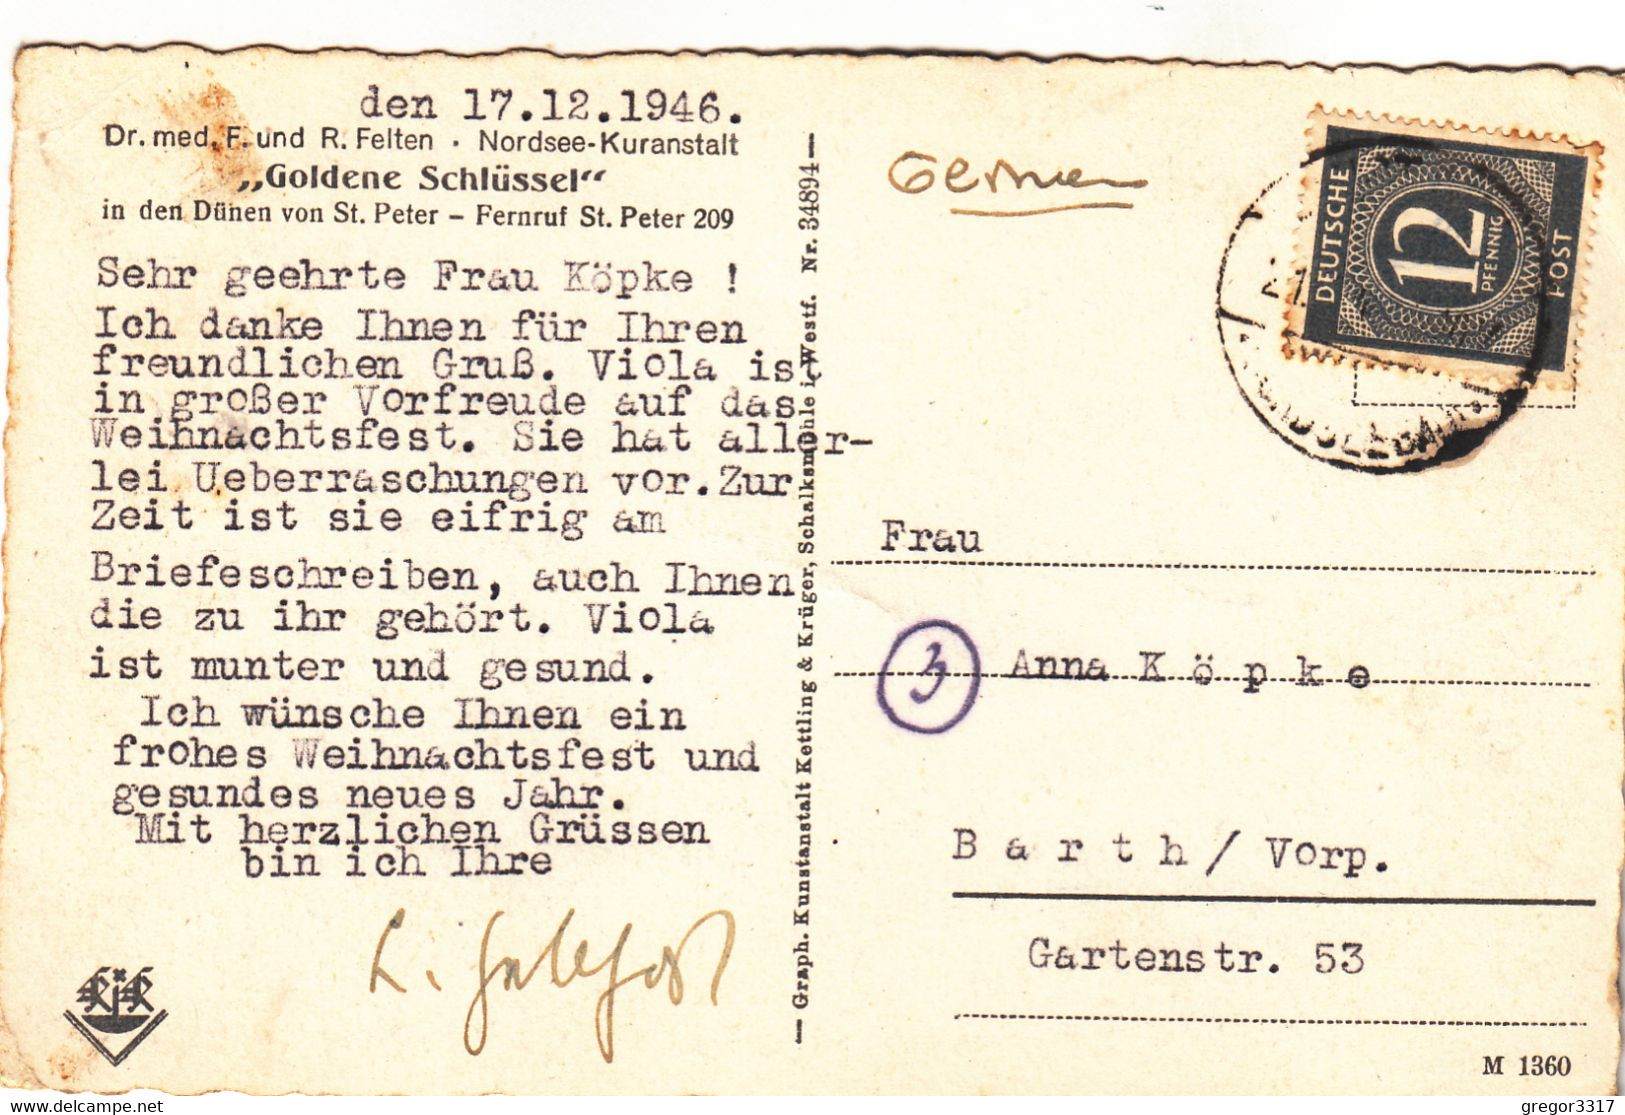 den 17.12.1946.
Dr. med. F. und R. Felten · Nordsee-Kuranstalt
„Goldene Schlüssel“
in den Dünen von St. Peter – Fernruf St. Peter 209
Sehr geehrte Frau Köpke !
Ich danke Ihnen für Ihren
freundlichen Gruß. Viola ist
in großer Vorfreude auf das
Weihnachtsfest. Sie hat aller-
lei Ueberraschungen vor.Zur
Zeit ist sie eifrig am
Briefeschreiben, auch Ihnen
die zu ihr gehört. Viola
ist munter und gesund.
Ich wünsche Ihnen ein
frohes Weihnachtsfest und
gesundes neues Jahr.
Mit herzlichen Grüssen
bin ich Ihre
— Graph. Kunstanstalt Kettling & Krüger, Schalksmühle i. Westf. Nr. 34894 —
DEUTSCHE
12
PFENNIG
POST
Frau
Anna K ö p k e
B a r t h / Vorp.
Gartenstr. 53
M 1360
delcampe.net
gregor3317